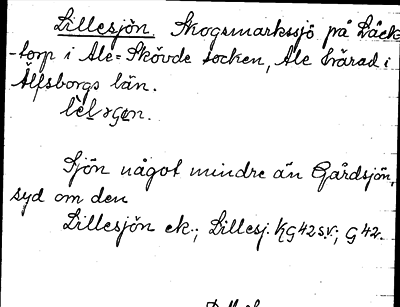 Lillesjön. Skogsmarkssjö på Bäck
-torp i Ale-Skövde socken, Ale härad i
Älfsborgs län.
Sjön något mindre än Gårdsjön,
syd om den
Lillesjön ek.; Lillesj. KG42sv.; G 42.